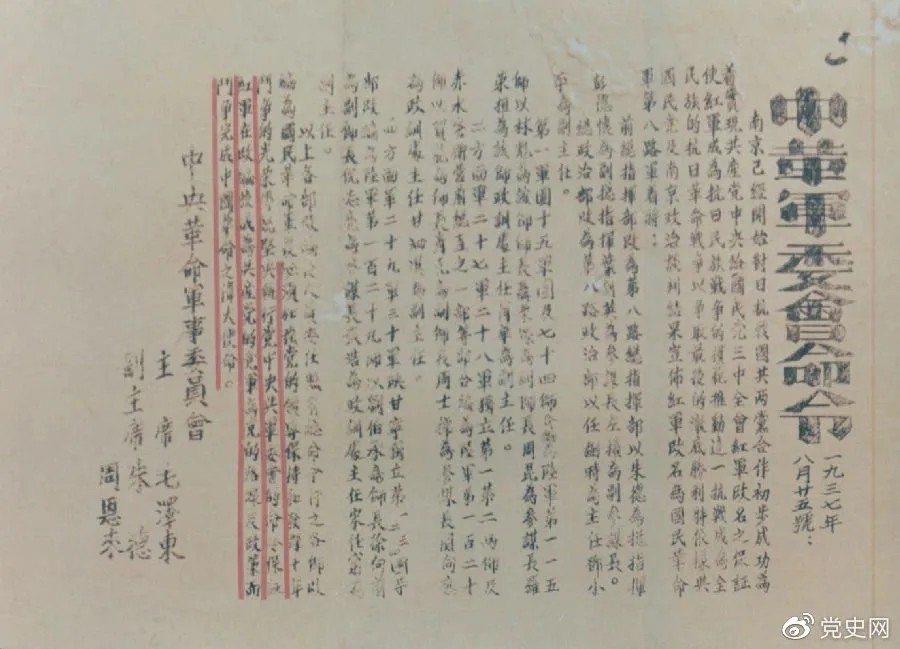 中革軍委會命令
一九三七年
八月廿五號：
南京已經開始對日抗戰國共兩黨合作初步成功為
着實現共產党中央給國民党三中全會紅軍改名之保証
使紅軍成為抗日民族戰爭的模範推動這一抗戰成為全
民族的抗日革命戰爭以爭取最後的徹底勝利特依據與
國民党及南京政治談判結果宣佈紅軍改名為國民革命
軍第八路軍着將：
前總指揮部改為第八路總指揮部以朱德為總指揮
彭德懷為副總指揮葉劍英為參謀長左權為副參謀長。
總政治部改為第八路政治部以任弼時為主任鄧小
平為副主任。
第一軍團十五軍團及七十四師改為陸軍第一一五
師以林彪為該師師長聶榮臻為副師長周昆為參謀長羅
榮桓為該師政訓處主任蕭華為副主任。
二方面軍二十七軍二十八軍獨立第一第二兩師及
赤水警衛營前總直之一部等部合編為陸軍第一百二十
師以賀龍為師長蕭克為副師長周士第為參謀長關向應
為政訓處主任甘泗淇為副主任。
四方面軍二十九軍三十軍陝甘寧獨立第一二三四等
部改編為陸軍第一百二十九師以劉伯承為師長徐向前
為副師長倪志亮為參謀長張浩為政訓處主任宋任窮為
副主任。
以上各部改編後人員委任照前總命令行之各部改
編為國民革命軍後必須加强党的領導保持和發揚十年
鬥爭的光榮傳統堅決執行党中央與軍委會的命令保証
紅軍在改編後成為共產党的党軍為党的路線及政策而
鬥爭完成中國革命之偉大使命。
中央革命軍事委員會
主席毛澤東
副主席朱德
周恩來
党史网